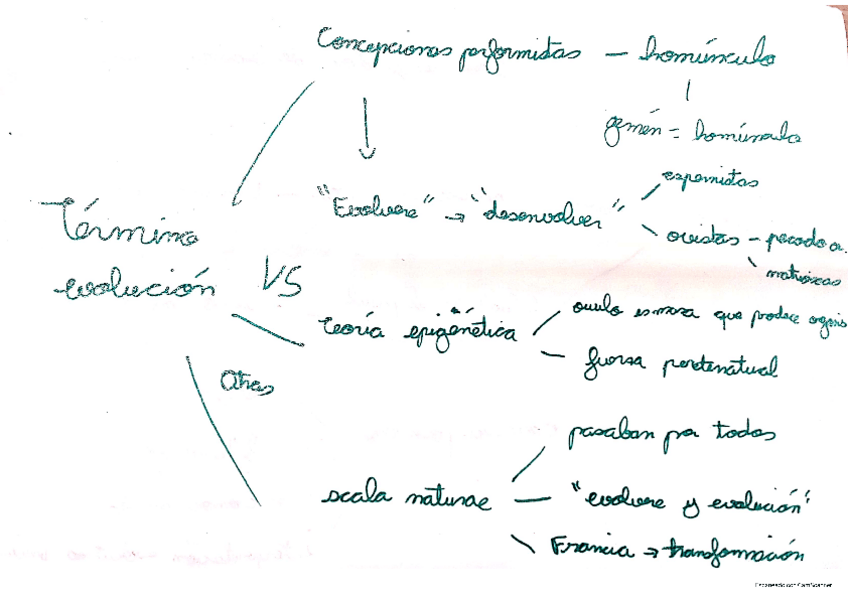 Concepciones performistas — homúnculo
gemén = homúnculo
"Evolvere" → "desenvolver"
espermistas
ovistas — pecado o.
matrioscas
Término
evolución
VS
teoría epigenética
que produce organis
fuerza
Otras
scala naturae
pasaban por todas
"evolvere y evolución"
Francia → transformación
Escaneado con CamScanner